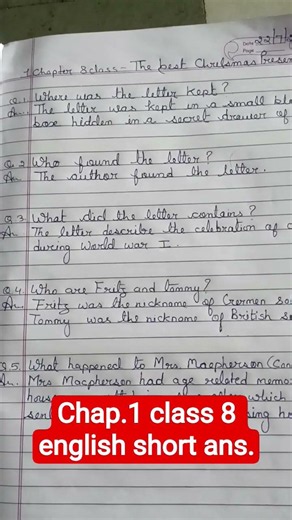 Date 22/7/2
Page
1 Chapter 8 class - The best Christmas Presen
Q.1 Where was the letter kept?
An. The letter was kept in a small bla
box hidden in a secret drawer of
Q.2 Who found the letter?
An. The author found the letter.
Q.3 What did the letter contains?
An. The letter describe the celebration of c
during World war I.
Q.4 Who are Fritz and tommy?
An. Fritz was the nickname of Germen so
Tommy was the nickname of British s
Q5 What happened to Mrs. Macpherson (Con
An. Mrs Macpherson had age related memo
hous which
sen ing h
Chap.1 class 8
english short ans.